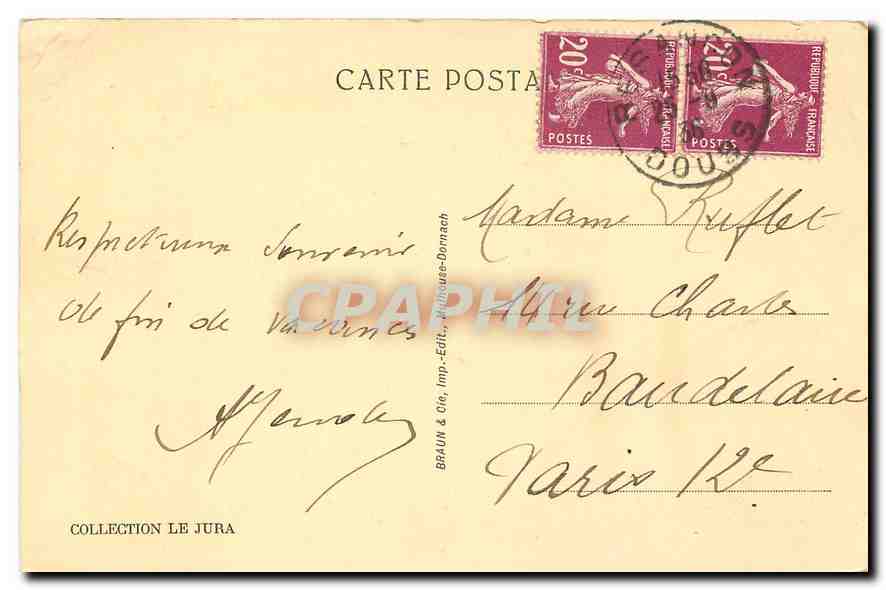 CARTE POSTA
20c
REPUBLIQUE FRANÇAISE
POSTES
20c
REPUBLIQUE FRANÇAISE
POSTES
DOUBS
Respectueux Souvenir
de fin de vacances
COLLECTION LE JURA
BRAUN & Cie, Imp.-Edit., Mulhouse-Dornach
Madame Ruflet
14 rue Charles
Baudelaire
Paris 12e
CPAPHIL